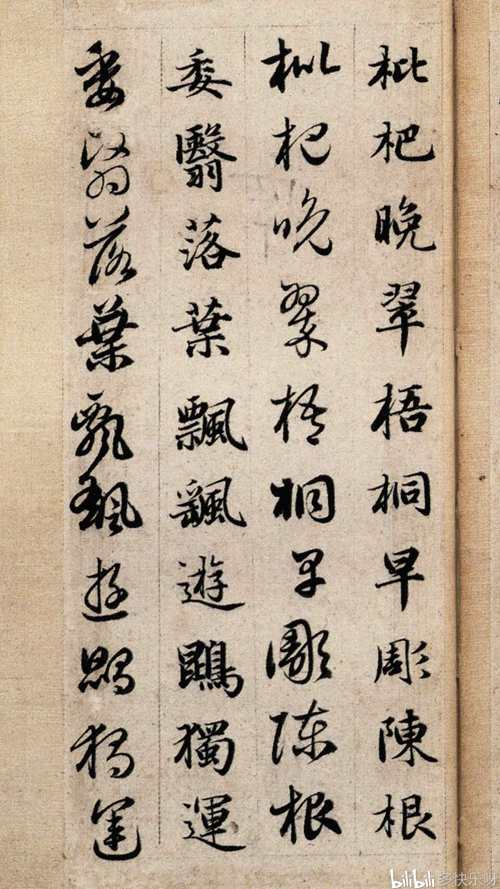 枇杷晚翠梧桐早彫陳根
枇杷晚翠梧桐早彫陳根
委翳落葉飄颻遊鵾獨運
委翳落葉飄颻遊鵾獨運
bilibili 多快乐呀